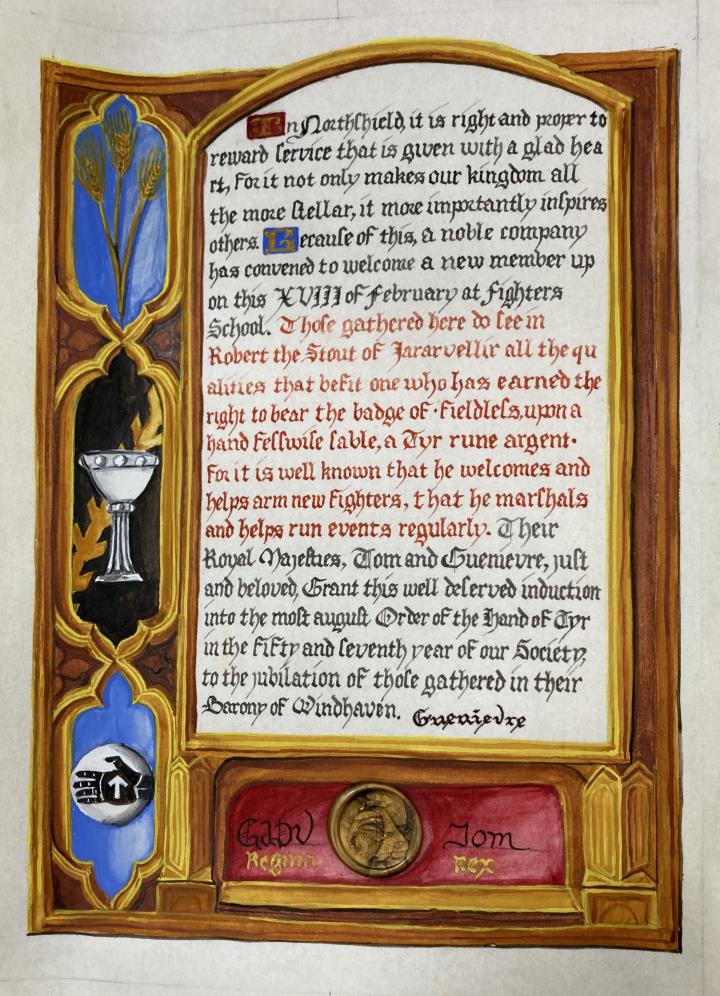 In Northshield, it is right and proper to
reward service that is given with a glad hea
rt, for it not only makes our kingdom all
the more stellar, it more importantly inspires
others. Because of this, a noble company
has convened to welcome a new member up
on this XVIII of February at Fighters
School. Those gathered here do see in
Robert the Stout of Jararvellir all the qu
alities that befit one who has earned the
right to bear the badge of · fieldless, upon a
hand fesswise sable, a Tyr rune argent ·
for it is well known that he welcomes and
helps arm new fighters, that he marshals
and helps run events regularly. Their
Royal Majesties, Tom and Guenievre, just
and beloved, Grant this well deserved induction
into the most august Order of the Hand of Tyr
in the fifty and seventh year of our Society,
to the jubilation of those gathered in their
Barony of Windhaven. Guenievre
Tom
Regina Rex